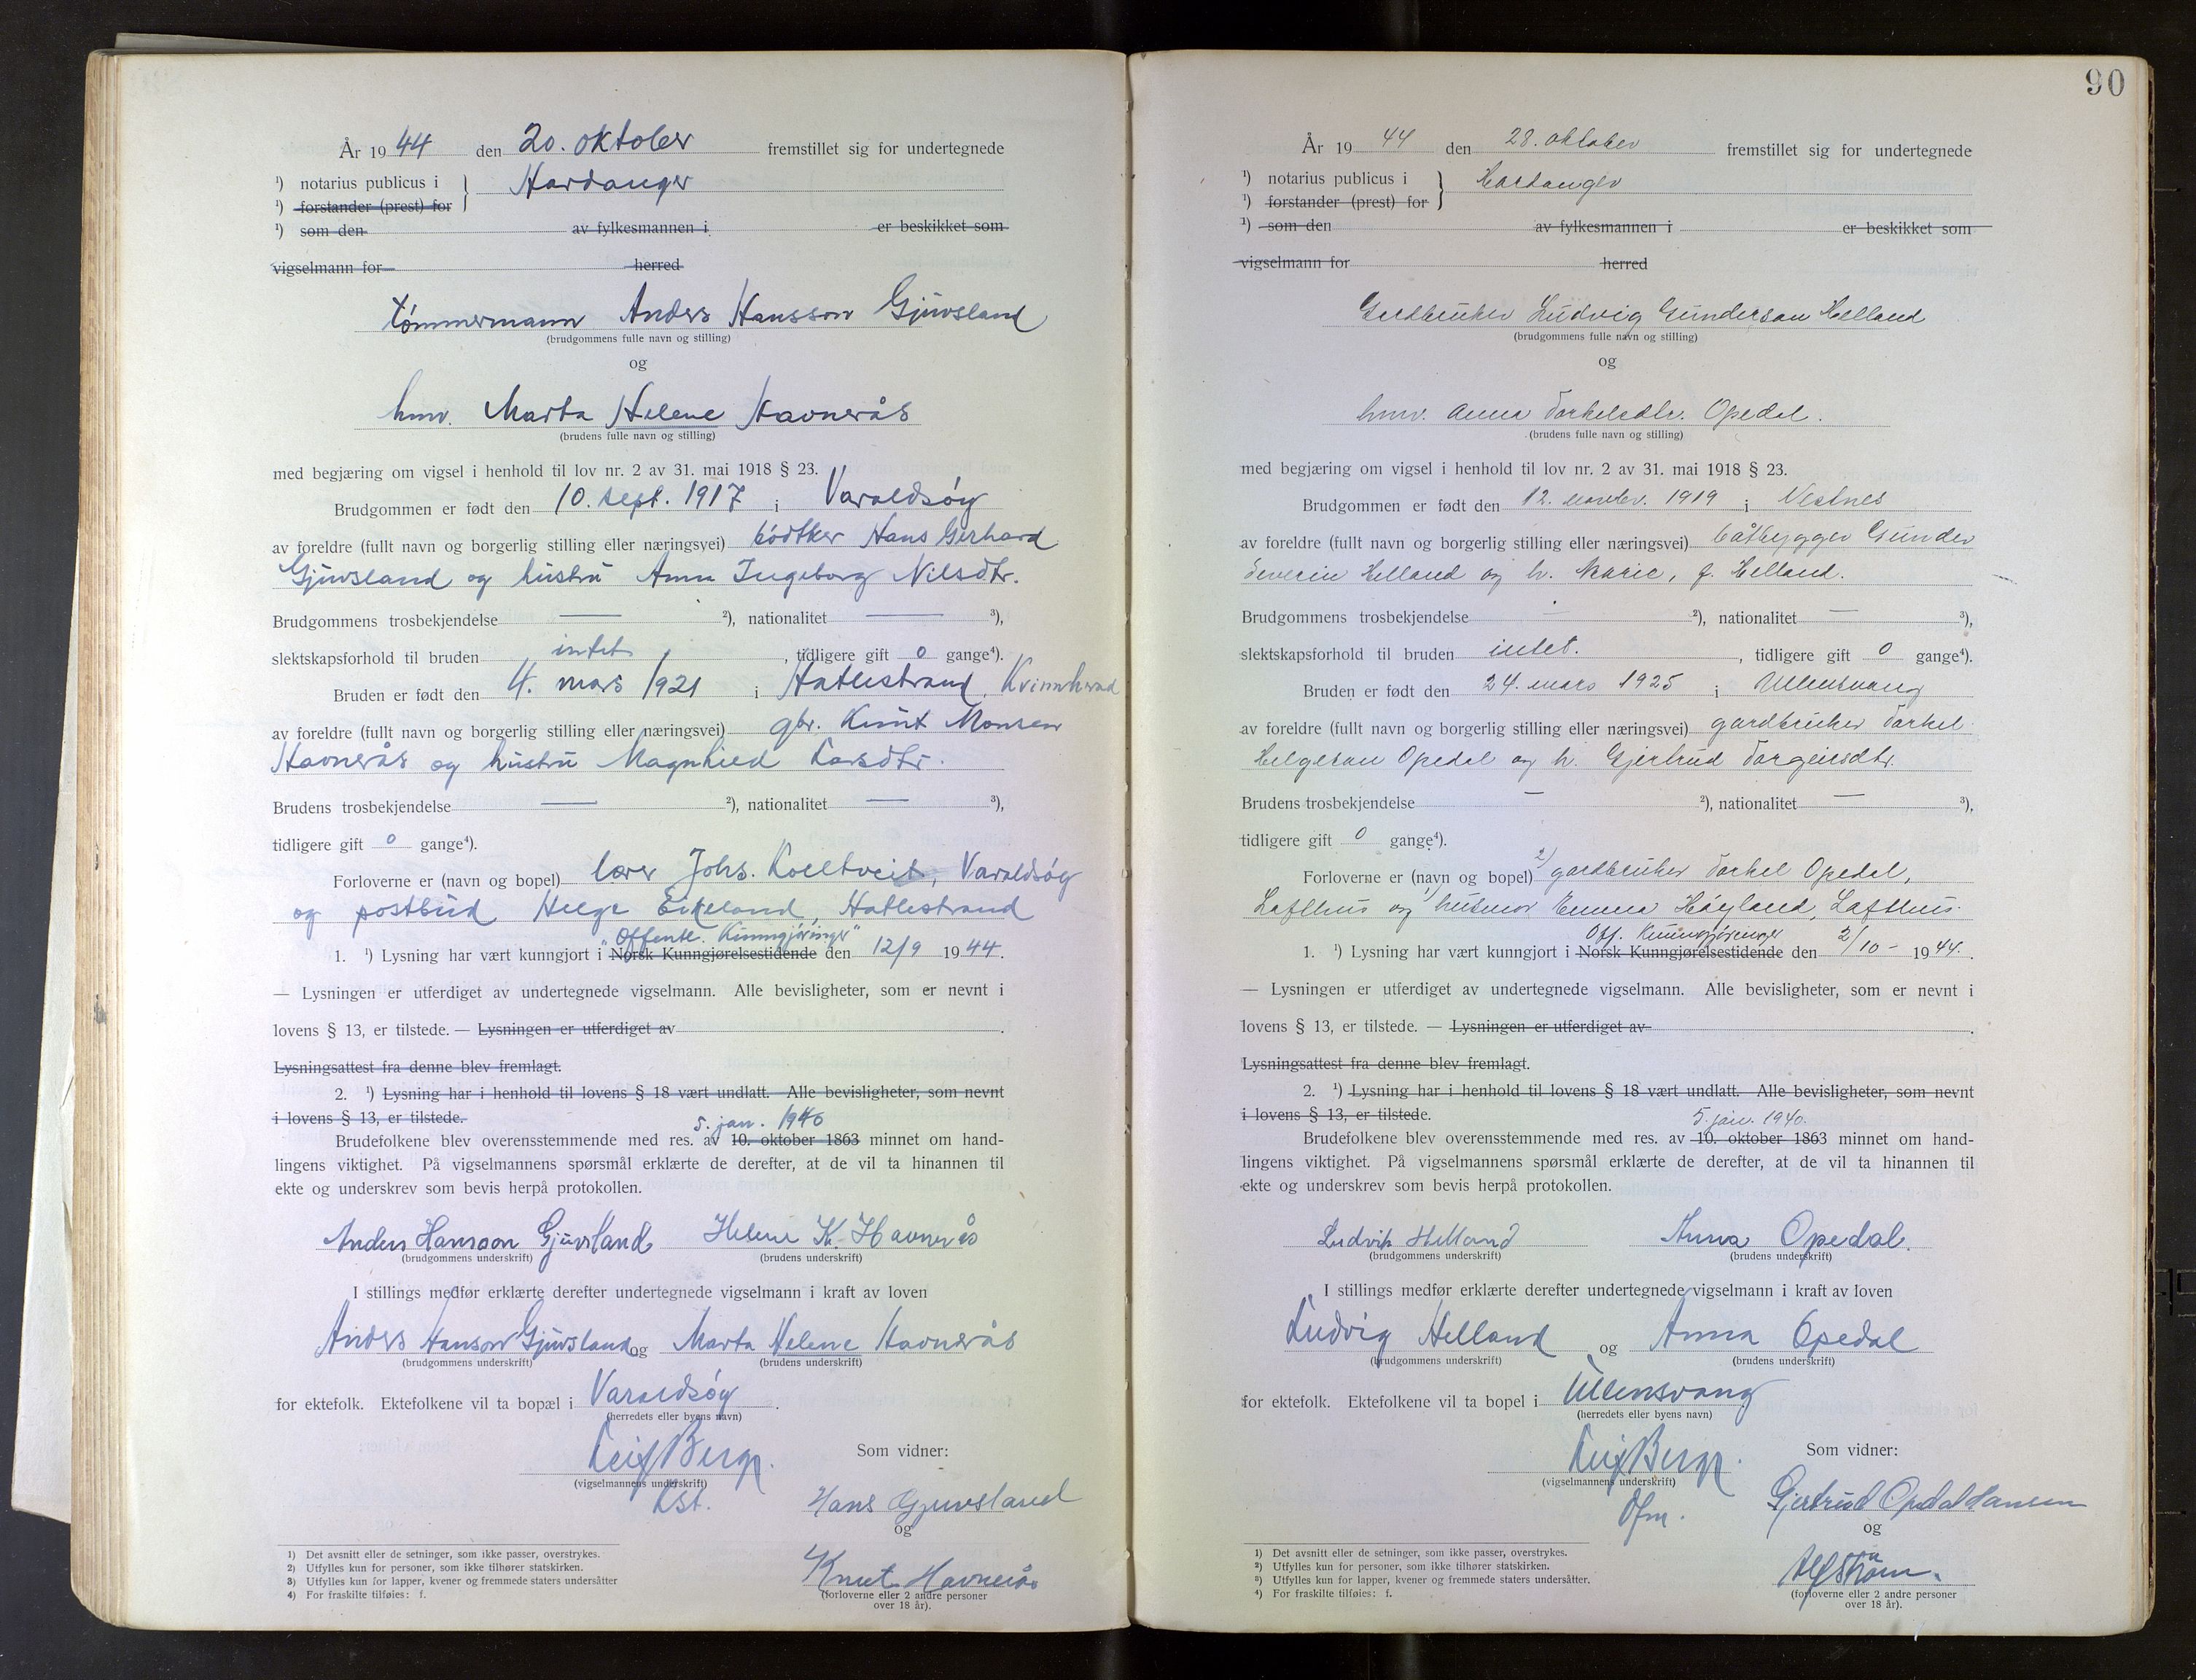 År 1944 den 20. oktober fremstillet sig for undertegnede
¹) notarius publicus i } Hardanger
¹) forstander (prest) for
¹) som den av fylkesmannen i er beskikket som
vigselmann for herred
tømmermann Anders Hansson Gjuvsland
(brudgommens fulle navn og stilling)
og
hmv. Marta Helene Havnerås
(brudens fulle navn og stilling)
med begjæring om vigsel i henhold til lov nr. 2 av 31. mai 1918 § 23.
Brudgommen er født den 10. sept. 1917 i Varaldsøy
av foreldre (fullt navn og borgerlig stilling eller næringsvei) bødtker Hans Gerhard
Gjuvsland og hustru Anna Ingeborg Nilsdtr.
Brudgommens trosbekjendelse — ²), nationalitet — ³),
slektskapsforhold til bruden intet, tidligere gift 0 gange⁴).
Bruden er født den 4. mars 1921 i Hatlestrand, Kvinnherad
av foreldre (fullt navn og borgerlig stilling eller næringsvei) gbr. Knut Monsen
Havnerås og hustru Magnhild Larsdtr.
Brudens trosbekjendelse — ²), nationalitet — ³),
tidligere gift 0 gange⁴).
Forloverne er (navn og bopel) lærer Johs. Koltveit, Varaldsøy
og postbud Helge Eikeland, Hatlestrand
"Offentl. Kunngjøringer"
1. ¹) Lysning har vært kunngjort i Norsk Kunngjørelsestidende den 12/9 1944.
— Lysningen er utferdiget av undertegnede vigselmann. Alle bevisligheter, som er nevnt i
lovens § 13, er tilstede. — Lysningen er utferdiget av .
Lysningsattest fra denne blev fremlagt.
2. ¹) Lysning har i henhold til lovens § 18 vært undlatt. Alle bevisligheter, som nevnt
i lovens § 13, er tilstede.
5. jan. 1940
Brudefolkene blev overensstemmende med res. av 10. oktober 1863 minnet om hand-
lingens viktighet. På vigselmannens spørsmål erklærte de derefter, at de vil ta hinannen til
ekte og underskrev som bevis herpå protokollen.
Anders Hansson Gjuvsland Helene K. Havnerås
(brudgommens underskrift) (brudens underskrift)
I stillings medfør erklærte derefter undertegnede vigselmann i kraft av loven
Anders Hanson Gjuvsland og Marta Helene Havnerås
(brudgommens underskrift) (brudens underskrift)
for ektefolk. Ektefolkene vil ta bopæl i Varaldsøy .
(herredets eller byens navn)
Leif Berge. Som vidner:
(vigselmannens underskrift)
Kst. Hans Gjuvsland
og
Knut Havnerås
(forloverne eller 2 andre personer
over 18 år).
1) Det avsnitt eller de setninger, som ikke passer, overstrykes.
2) Utfylles kun for personer, som ikke tilhører statskirken.
3) Utfylles kun for lapper, kvener og fremmede staters undersåtter
4) For fraskilte tilføies: f.
90
År 1944 den 28. oktober fremstillet sig for undertegnede
¹) notarius publicus i } Hardanger
¹) forstander (prest) for
¹) som den av fylkesmannen i er beskikket som
vigselmann for herred
Gardbruker Ludvig Gunderson Helland
(brudgommens fulle navn og stilling)
og
hmv. Anna Torkelsdtr. Opedal.
(brudens fulle navn og stilling)
med begjæring om vigsel i henhold til lov nr. 2 av 31. mai 1918 § 23.
Brudgommen er født den 12. 1919 i Vestnes
av foreldre (fullt navn og borgerlig stilling eller næringsvei) båtbygger Gunder
Severin Helland og h. Marie, f. Helland.
Brudgommens trosbekjendelse — ²), nationalitet — ³),
slektskapsforhold til bruden intet. , tidligere gift 0 gange⁴).
Bruden er født den 24. mars 1925 i Ullensvang
av foreldre (fullt navn og borgerlig stilling eller næringsvei) gardbruker Torkel
Helgeson Opedal og h. Gjertrud Torgeirsdtr.
Brudens trosbekjendelse — ²), nationalitet — ³),
tidligere gift 0 gange⁴).
Forloverne er (navn og bopel) 2) gardbruker Torkel Opedal,
Lofthus og 1) husmor Emma Høyland, Lofthus.
Off. Kunngjøringer
1. ¹) Lysning har vært kunngjort i Norsk Kunngjørelsestidende den 2/10 - 1944. .
— Lysningen er utferdiget av undertegnede vigselmann. Alle bevisligheter, som er nevnt i
lovens § 13, er tilstede. — Lysningen er utferdiget av .
Lysningsattest fra denne blev fremlagt.
2. ¹) Lysning har i henhold til lovens § 18 vært undlatt. Alle bevisligheter, som nevnt
i lovens § 13, er tilstede.
5. jan. 1940.
Brudefolkene blev overensstemmende med res. av 10. oktober 1863 minnet om hand-
lingens viktighet. På vigselmannens spørsmål erklærte de derefter, at de vil ta hinannen til
ekte og underskrev som bevis herpå protokollen.
Ludvik Helland Anna Opedal.
(brudgommens underskrift) (brudens underskrift)
I stillings medfør erklærte derefter undertegnede vigselmann i kraft av loven
Ludvig Helland og Anna Opedal
(brudgommens underskrift) (brudens underskrift)
for ektefolk. Ektefolkene vil ta bopel i Ullensvang
(herredets eller byens navn)
Leif Berge. Som vidner:
(vigselmannens underskrift)
Ofm. Gjertrud Opedal Hansen
og
Alf Strøm.
(forloverne eller 2 andre personer
over 18 år).
1) Det avsnitt eller de setninger, som ikke passer, overstrykes.
2) Utfylles kun for personer, som ikke tilhører statskirken.
3) Utfylles kun for lapper, kvener og fremmede staters undersåtter.
4) For fraskilte tilføies: f.